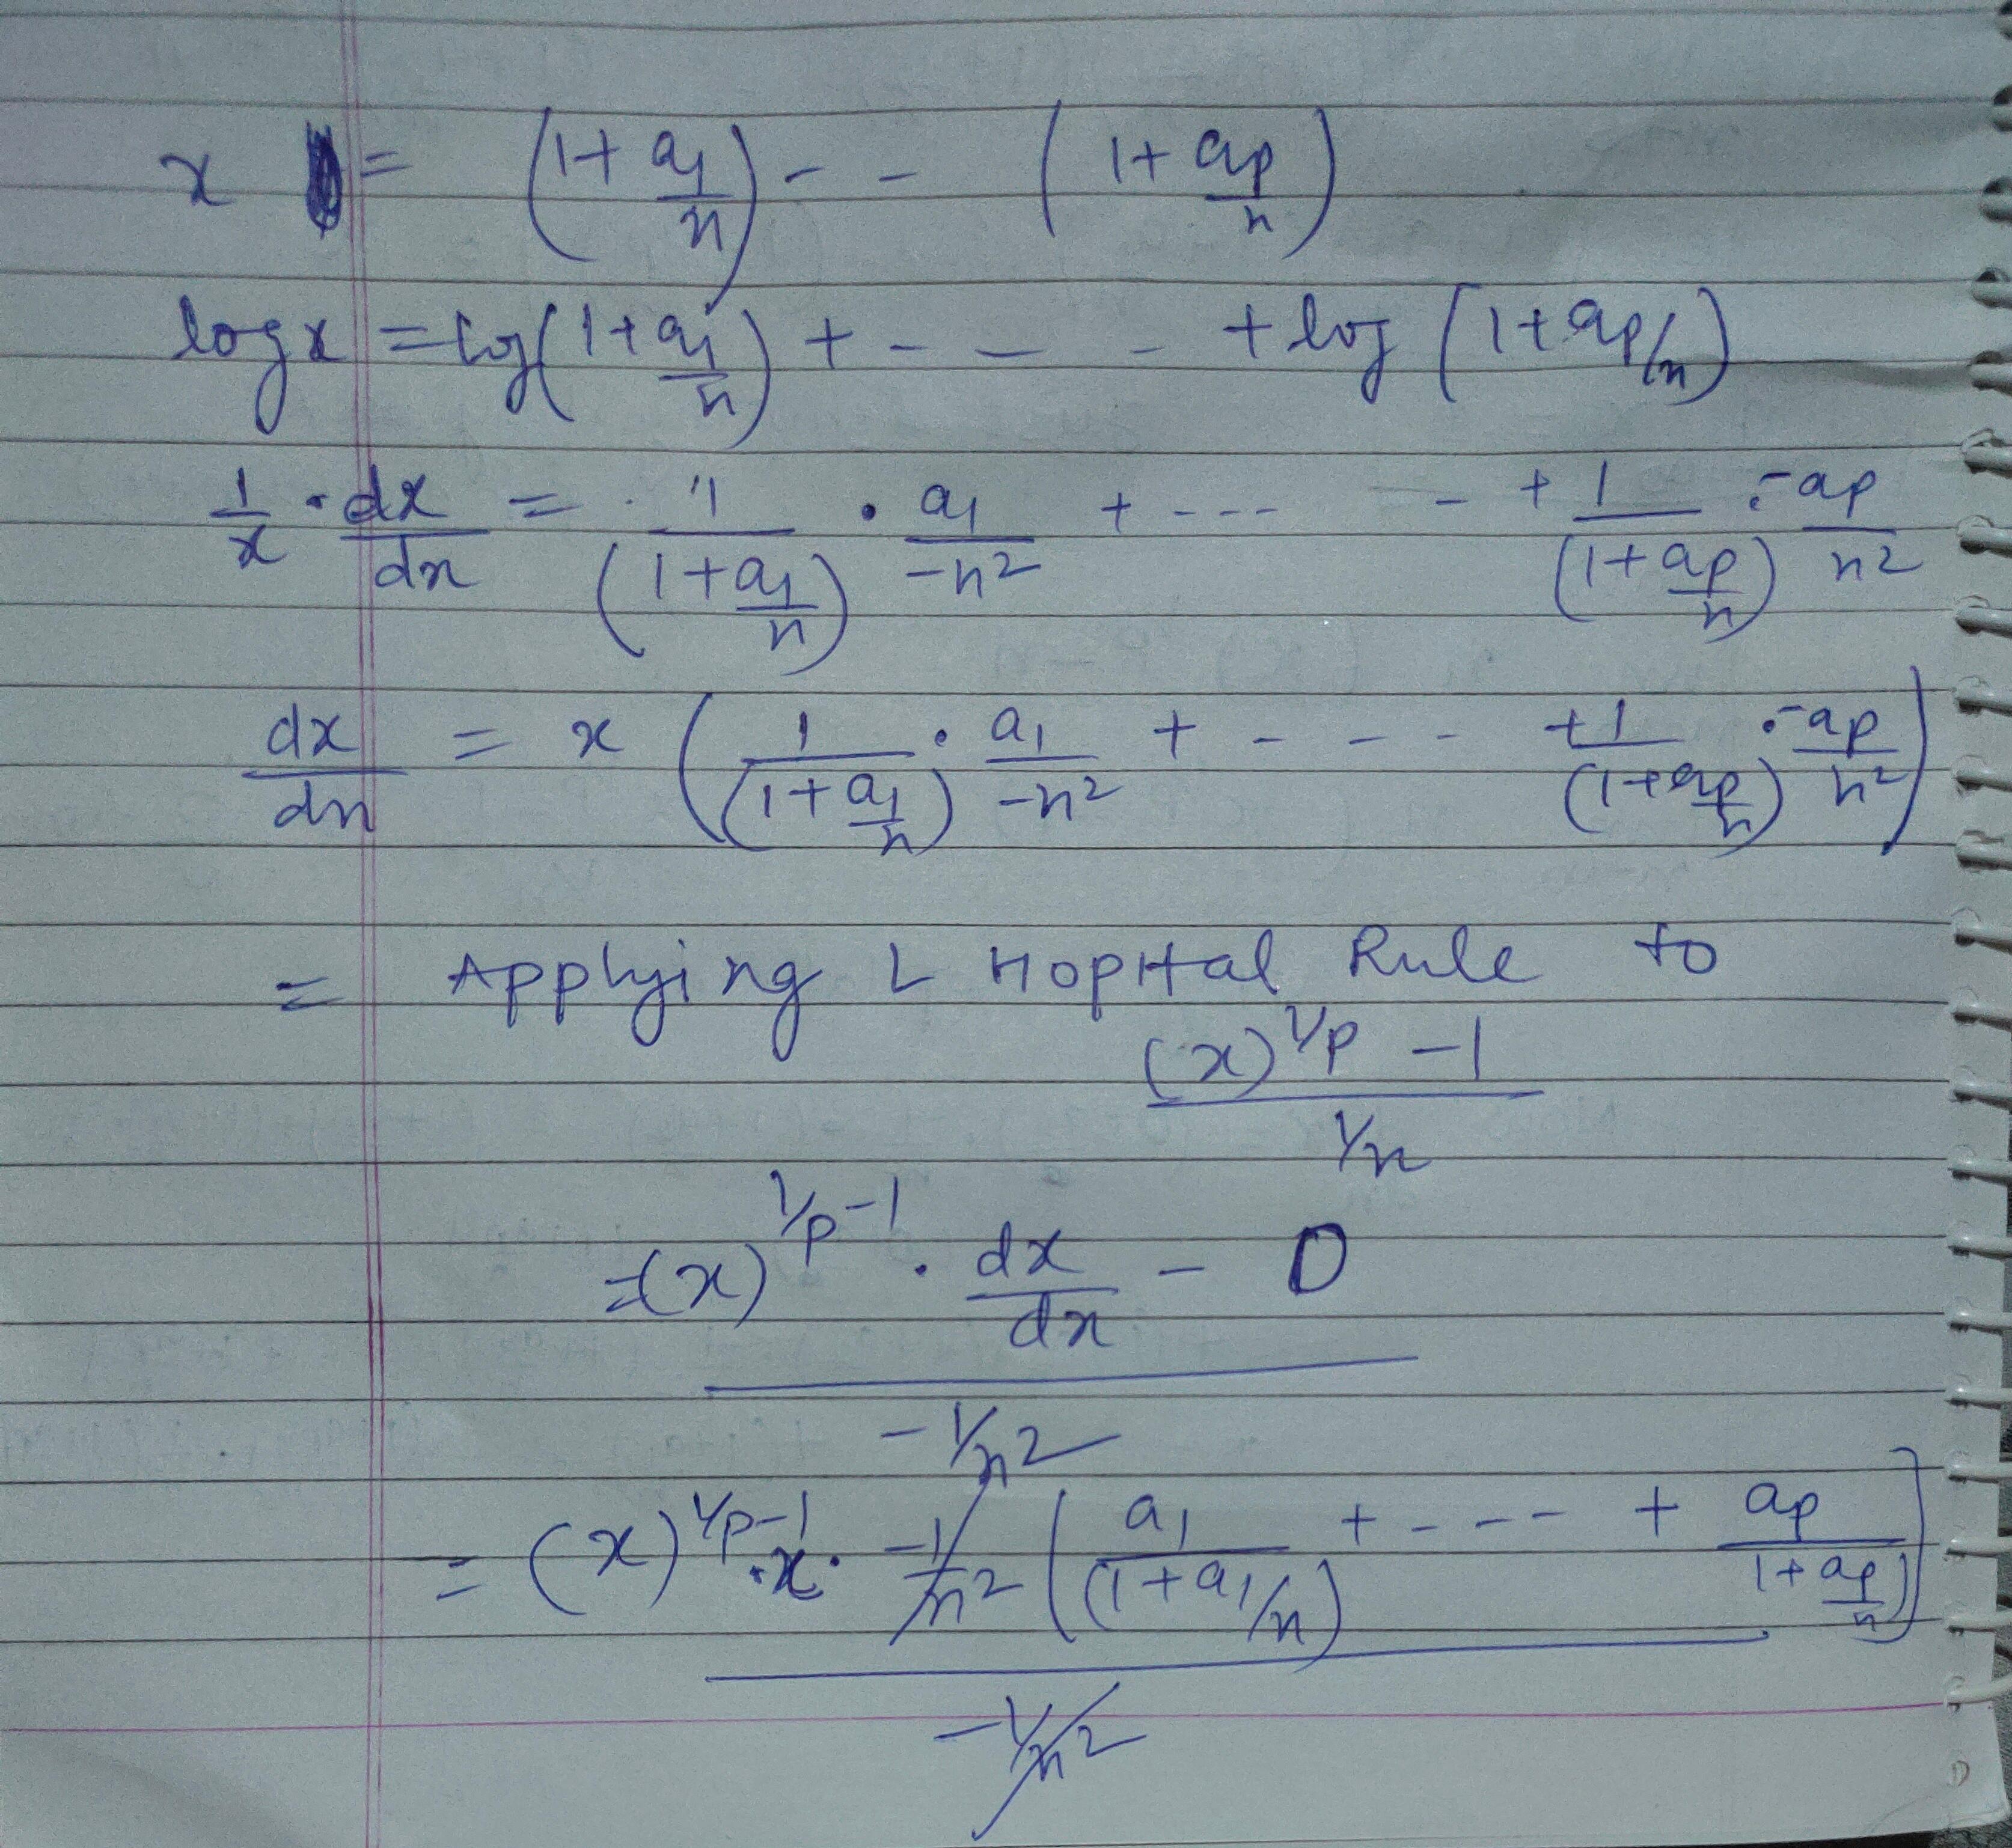 x = (1+a₁/n) - - (1+ap/n)
log x = log(1+a₁/n) + - - - + log (1+ap/n)
1/x · dx/dn = 1/(1+a₁/n) · a₁/-n² + - - - - + 1/(1+ap/n) · -ap/n²
dx/dn = x (1/(1+a₁/n) · a₁/-n² + - - - - +1/(1+ap/n) · -ap/n²)
= Applying L Hopital Rule to
(x)^1/p - 1 / 1/n
= (x)^1/p-1 · dx/dn - 0 / -1/n²
= (x)^1/p-1 · x · -1/n² (a₁/(1+a₁/n) + - - - - + ap/1+ap/n) / -1/n²